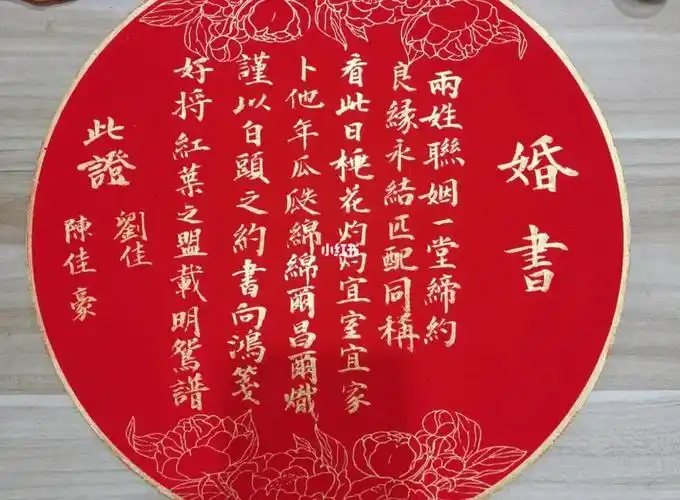 婚書
兩姓聯姻一堂締約
良緣永結匹配同稱
看此日桃花灼灼宜室宜家
卜他年瓜瓞綿綿爾昌爾熾
謹以白頭之約書向鴻箋
好将紅葉之盟載明鴛譜
此證
劉佳
陳佳豪
小红书